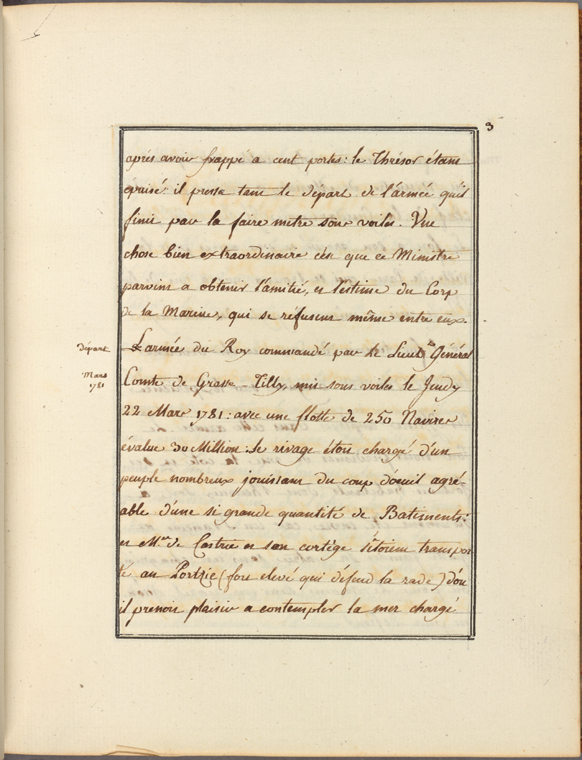 3
après avoir frappé a cent portes: le Thrésor étant
épuisé il pressa tant le départ de l'armée qu'il
finit par la faire mettre sous voiles. Une
chose bien extraordinaire c'est que ce Ministre
parvint a obtenir l'amitié, et l'estime du Corp
de la Marine, qui se réfusent même entre eux
Départ
Mars
1781
L'armée du Roy commandé par le Lieut. Général
Comte de Grasse-Tilly, mis sous voiles le Jeudy
22 Mars 1781: avec une flotte de 250 Navires
évalué 30 Million: le rivage étoit chargé d'un
peuple nombreux jouissant du coup d'oeuil agré-
able d'une si grande quantité de Batiments:
et Mr. de Castries et son cortège s'étoient transpor
té au Portzic (fort elevé qui défend la rade) d'où
il prenoit plaisir a contempler la mer chargé